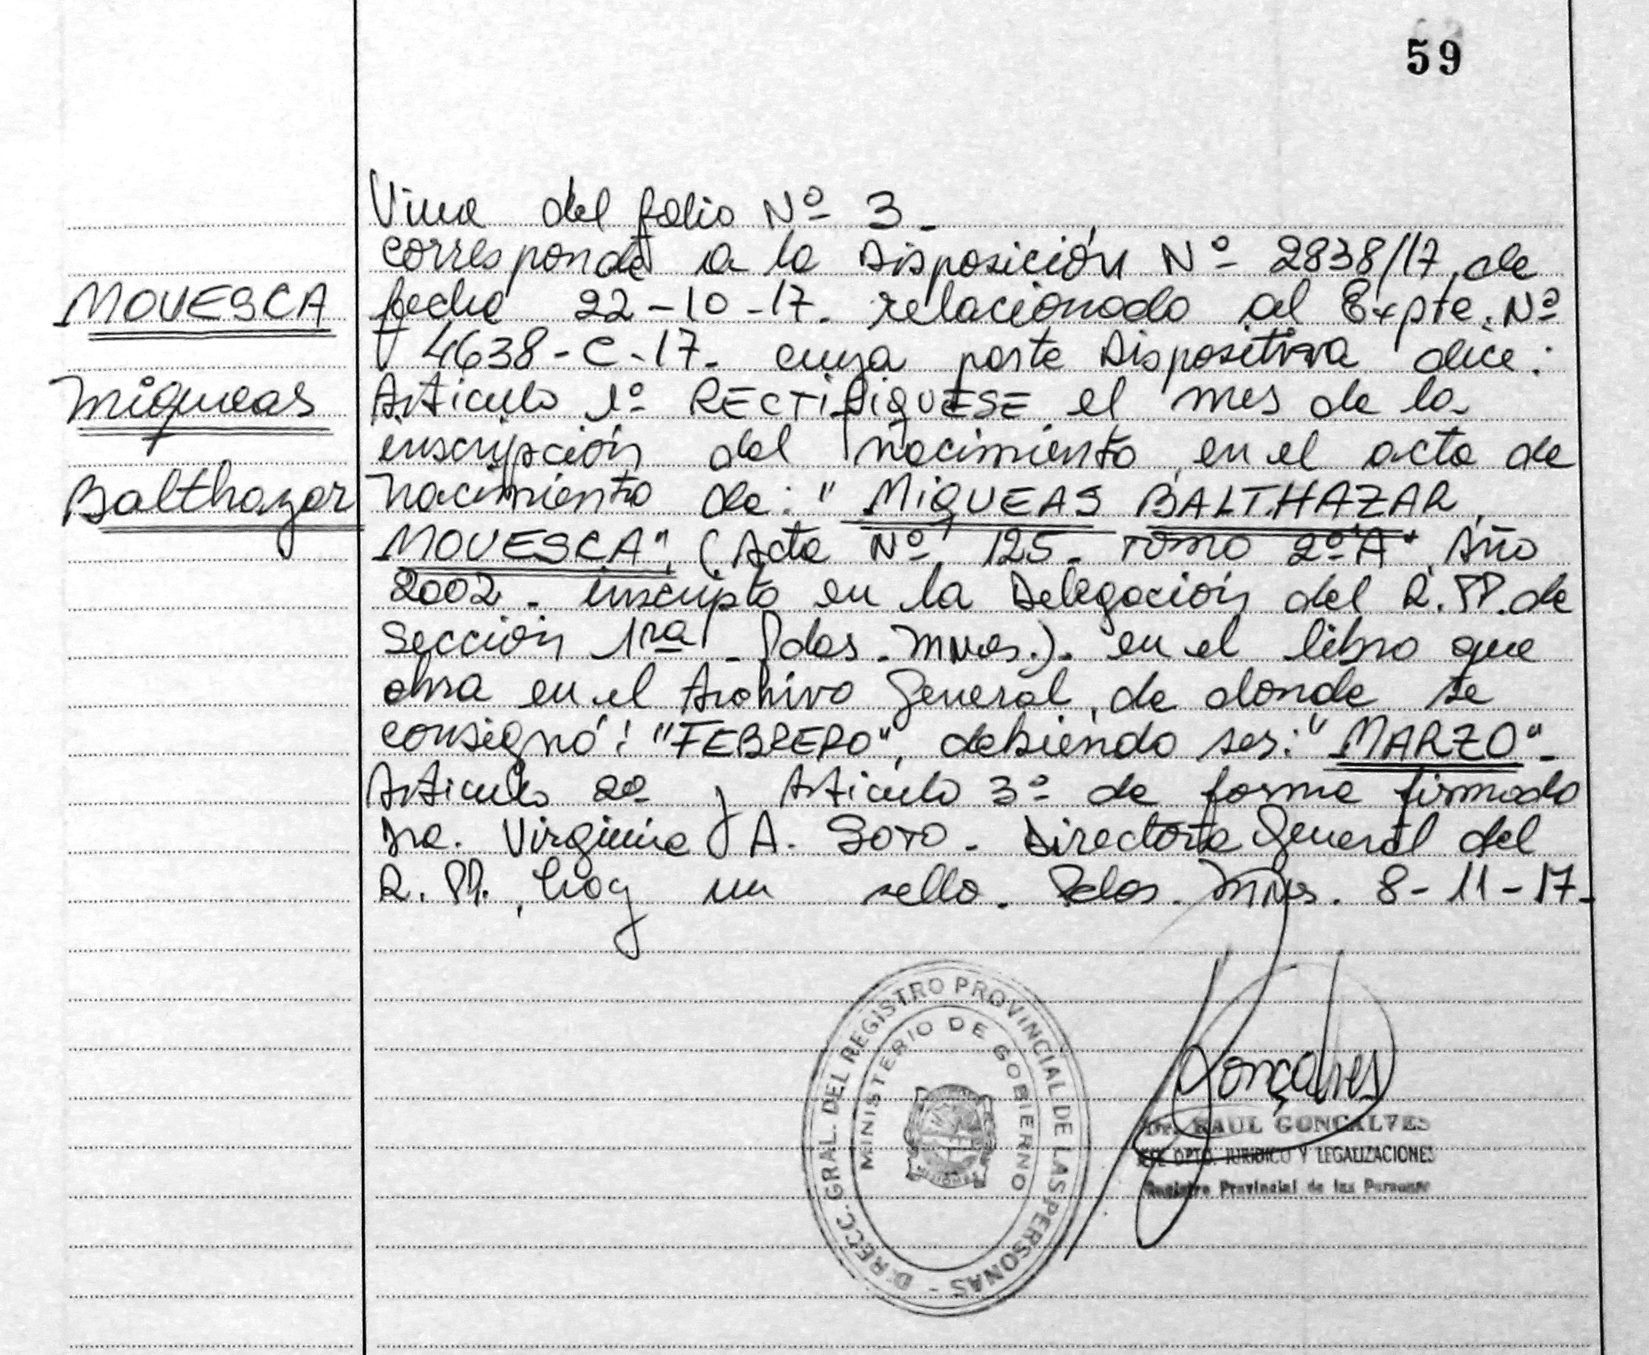 59
Viene del folio Nº 3.
corresponde a la Disposición Nº 2838/17, de
MOVESCA fecha 22-10-17. relacionado al Expte. Nº
4638-C-17. cuya parte Dispositiva dice:
Miqueas Articulo 1º RECTIFIQUESE el mes de la
inscripción del nacimiento, en el acta de
Balthazar nacimiento de: "MIQUEAS BALTHAZAR
MOVESCA", (Acta Nº 125. TOMO 2º "A" Año
2002. inscripto en la Delegación del R.PP. de
Sección 1ra. Pdas. Mnes.). en el libro que
obra en el Archivo General, de donde se
consignó: "FEBRERO", debiendo ser: "MARZO".
Articulo 2º y Articulo 3º de forma firmado
Dra. Virginia A. SOTO. Directora General del
R.PP., hay un sello. Pdas. Mnes. 8-11-17.
DIRECC. GRAL. DEL REGISTRO PROVINCIAL DE LAS PERSONAS -
MINISTERIO DE GOBIERNO
MISIONES
Gonçalves
Dr. RAUL GONCALVES
JEFE DPTO. JURIDICO Y LEGALIZACIONES
Registro Provincial de las Personas